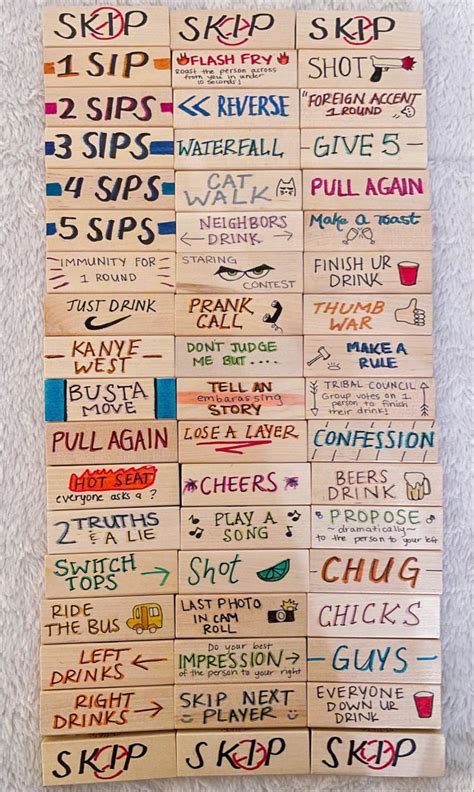 SKIP
SKIP
SKIP
1 SIP
FLASH FRY
Roast the person across
from you in under
10 seconds!
SHOT
2 SIPS
<< REVERSE
"FOREIGN ACCENT"
1 ROUND
3 SIPS
WATERFALL
- GIVE 5 -
4 SIPS
CAT
WALK
PULL AGAIN
5 SIPS
NEIGHBORS
DRINK
Make a Toast
IMMUNITY FOR
1 ROUND
STARING
CONTEST
FINISH UR
DRINK
JUST DRINK
PRANK
CALL
THUMB
WAR
- KANYE -
WEST
DONT JUDGE
ME BUT....
MAKE A
RULE
BUSTA
MOVE
TELL AN
embarassing
STORY
TRIBAL COUNCIL
Group votes on 1
person to finish
their drink!
PULL AGAIN
LOSE A LAYER
CONFESSION
HOT SEAT
everyone asks a ?
CHEERS
BEERS
DRINK
2 TRUTHS
& A LIE
PLAY A
SONG
PROPOSE
~dramatically~
to the person to your left
SWITCH
TOPS →
Shot
CHUG
RIDE
THE BUS
LAST PHOTO
IN CAM
ROLL
CHICKS
LEFT
DRINKS ←
Do your best
IMPRESSION →
of the person to your right
- GUYS -
RIGHT
DRINKS →
SKIP NEXT
PLAYER
EVERYONE
DOWN UR
DRINK
SKIP
SKIP
SKIP